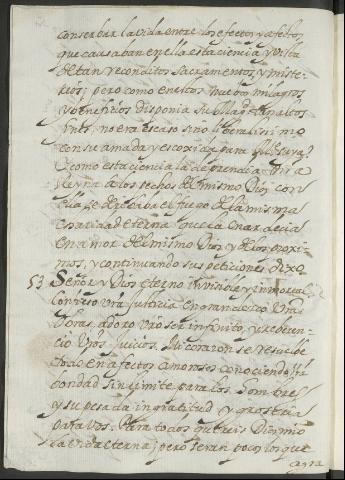 conserbar la vida entre los efectos y afectos
que causaban en ella esta ciencia y vista
de tan reconditos sacramentos y miste-
rios; pero como en estos nuebos milagros
y beneficios disponia su Mag.d en al cos
no era escaso sino liberalissimo
con su amada y escojida para M.e suya.
Y como esta ciencia la deprendia nrã
Reyna a los pechos del mismo Dios con
ella se deribaba el fuego de la misma
charidad eterna que la enardecia
en amor del mismo Dios y de los proxi-
mos, y continuando sus peticiones dixo.
53 Señor y Dios eterno invisible y inmortal
Confieso vrã justicia engrandezco vrãs
obras, adoro vrõ ser infinito, y reberen-
cio vrõs juicios. Mi corazon se resuelbe
todo en afectos amorosos conociendo vrã
bondad sin limite para los hombres
y su pesada ingratitud y groseria
para vos. Para todos quereis Dios mio
la vida eterna; pero seran pocos los que
agra